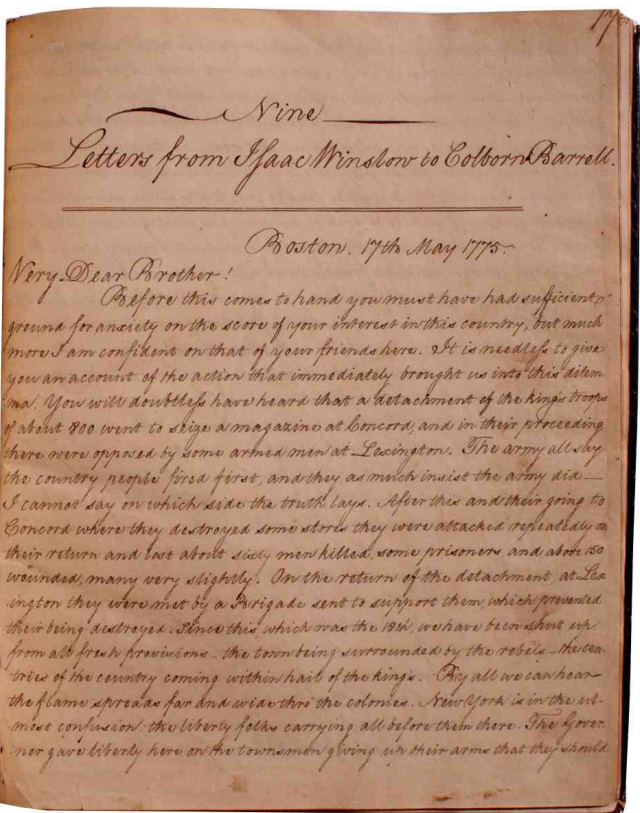 17
Nine
Letters from Isaac Winslow to Colborn Barrell.
Boston. 17th May 1775.
Very Dear Brother!
Before this comes to hand you must have had sufficient
ground for anxiety on the score of your interest in this country, but much
more I am confident on that of your friends here. It is needless to give
you an account of the action that immediately brought us into this dilem
ma. You will doubtless have heard that a detachment of the king's troops
of about 800 went to seize a magazine at Concord, and in their proceeding
there were opposed by some armed men at Lexington. The army all say
the country people fired first, and they as much insist the army did—
I cannot say on which side the truth lays. After this and their going to
Concord where they destroyed some stores they were attacked repeatedly on
their return and lost about sixty men killed, some prisoners and above 150
wounded, many very slightly. On the return of the detachment at Lex
ington they were met by a Brigade sent to support them, which prevented
their being destroyed. Since this which was the 18th, we have been shut up
from all fresh provisions - the town being surrounded by the rebels - the cen
tries of the country coming within hail of the king's. By all we can hear
the flame spreads far and wide thro' the colonies. New York is in the ut-
most confusion: the liberty folks carrying all before them there. The Gover
nor gave liberty here on the townsmen giving up their arms that they should